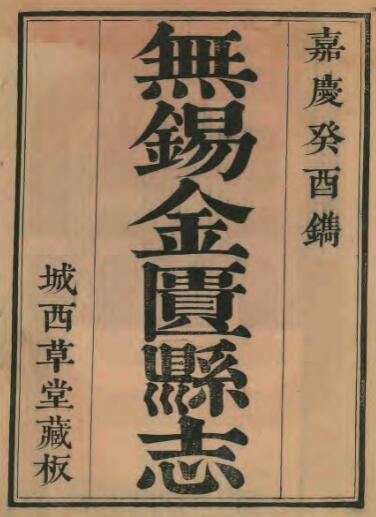 嘉慶癸酉鐫
無錫金匱縣志
城西草堂藏板